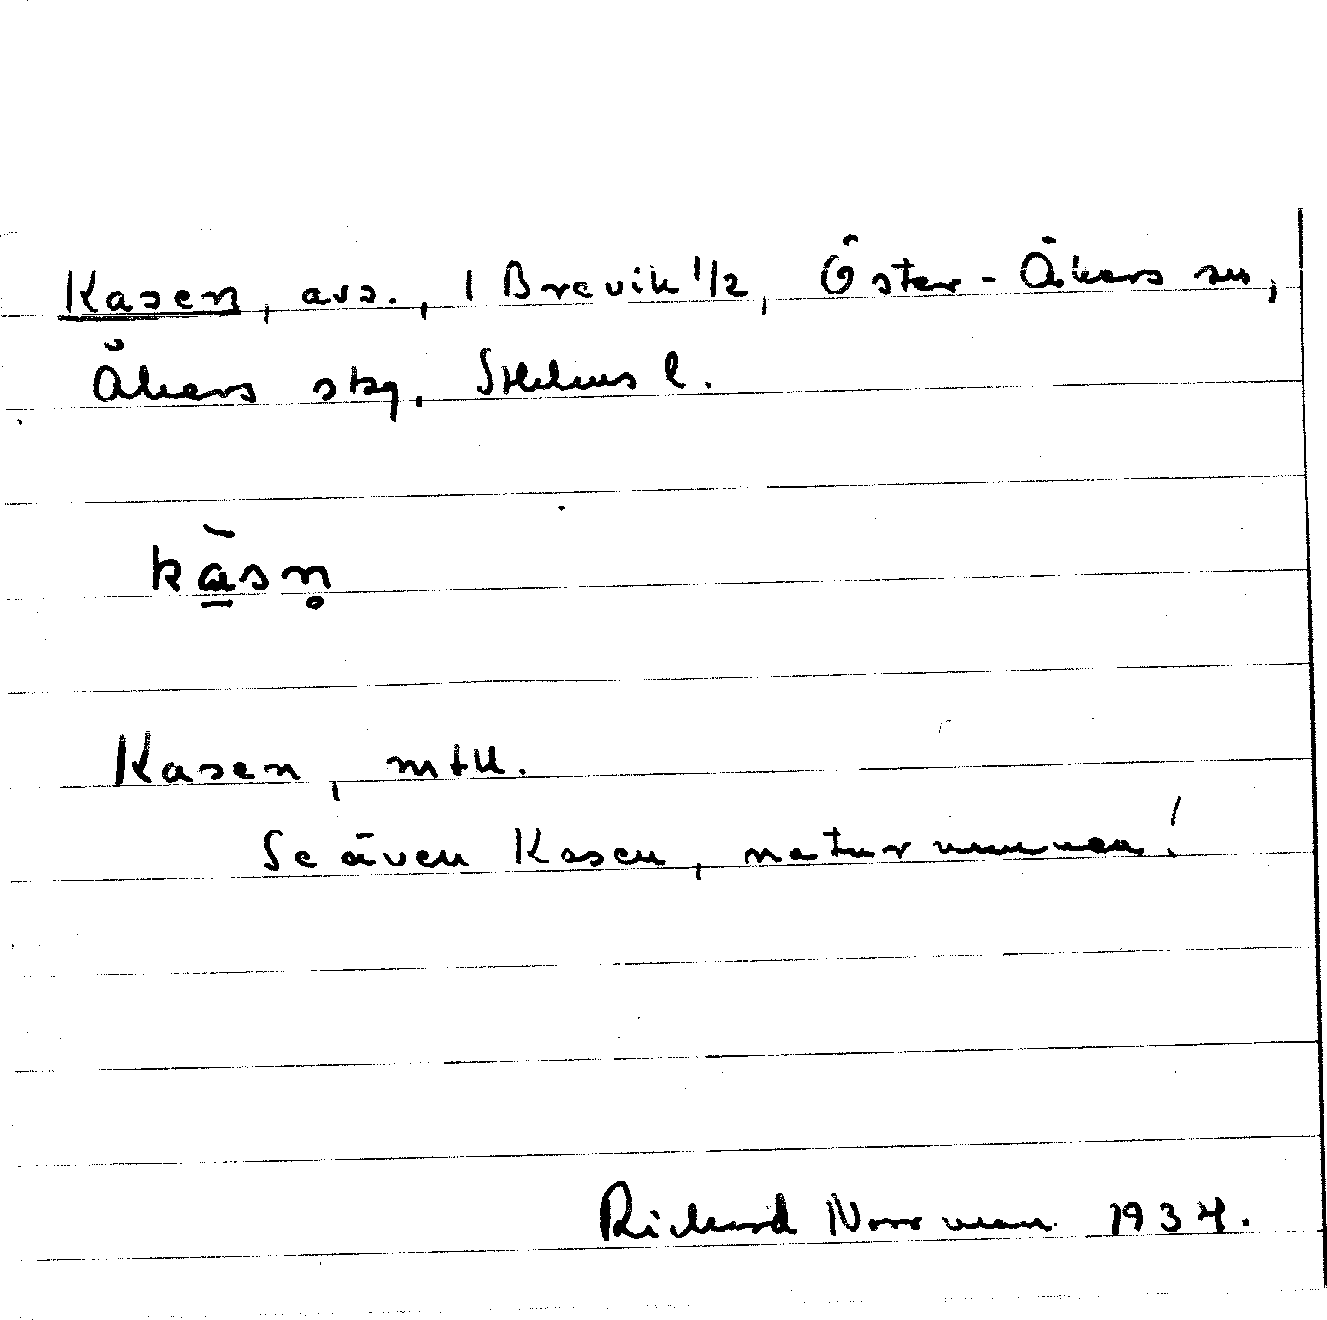 Kasen, avs., 1 Brevik 1/2, Öster-Åkers sn,
Åkers skg, Sthlms l.
kàsn̥
Kasen, mtl.
Se även Kasen, naturnamnen!
Richard Norrman 1934.